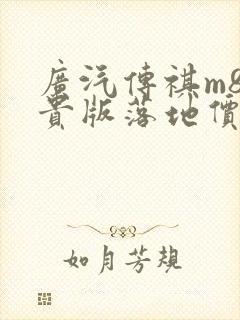 廣汽傳祺m8
貴版落地價
如月芳規